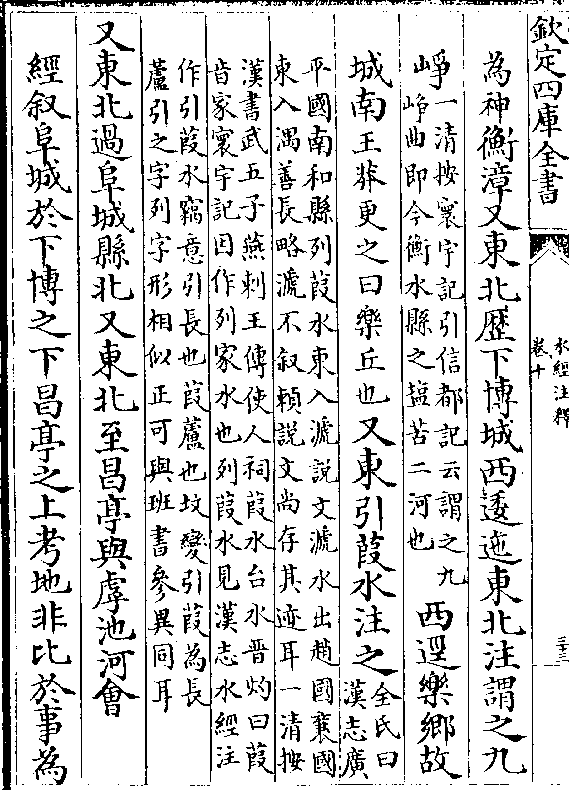 欽定四庫全書
水經注釋
卷十
三十三
為神衡漳又東北歷下博城西逶迤東北注謂之九
崢一清按寰宇記引信都記云謂之九
崢曲即今衡水縣之鹽苦二河也西逕樂鄉故
城南王莽更之曰樂丘也又東引葭水注之全氏曰
漢志廣
平國南和縣列葭水東入㴲說文㴲水出趙國襄國
東入湡善長略㴲不叙賴說文尚存其迹耳一清按
漢書武五子燕刺王傳使人祠葭水台水晉灼曰葭
音家寰宇記因作列家水也列葭水見漢志水經注
作引葭水竊意引長也葭蘆也坟變引葭為長
蘆引之字列字形相似正可與班書參異同耳
又東北過阜城縣北又東北至昌亭與虖池河會
經叙阜城於下博之下昌亭之上考地非比於事為